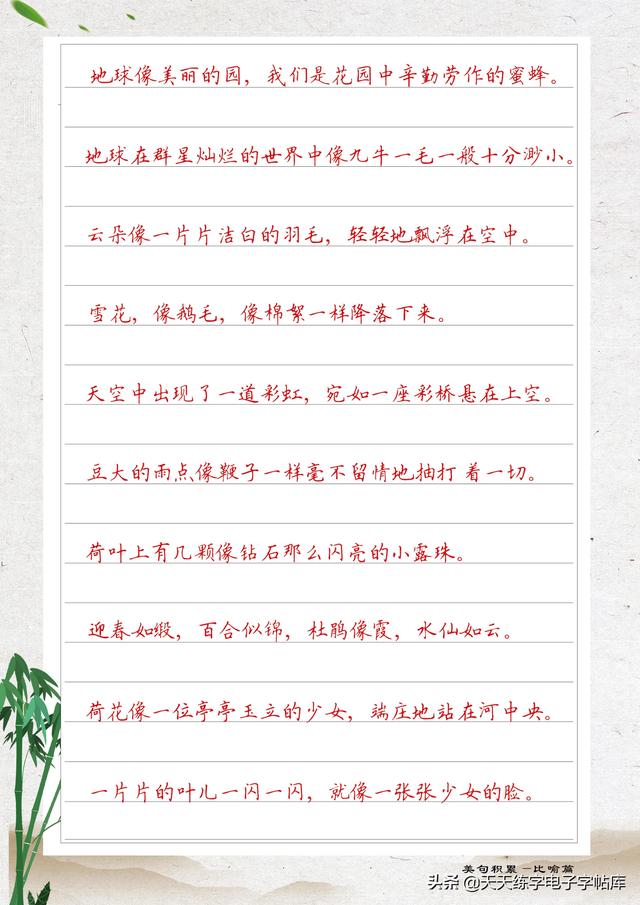 地球像美丽的园，我们是花园中辛勤劳作的蜜蜂。
地球在群星灿烂的世界中像九牛一毛一般十分渺小。
云朵像一片片洁白的羽毛，轻轻地飘浮在空中。
雪花，像鹅毛，像棉絮一样降落下来。
天空中出现了一道彩虹，宛如一座彩桥悬在上空。
豆大的雨点像鞭子一样毫不留情地抽打 着一切。
荷叶上有几颗像钻石那么闪亮的小露珠。
迎春如缎，百合似锦，杜鹃像霞，水仙如云。
荷花像一位亭亭玉立的少女，端庄地站在河中央。
一片片的叶儿一闪一闪，就像一张张少女的脸。
美句积累-比喻篇
头条 @天天练字电子字帖库